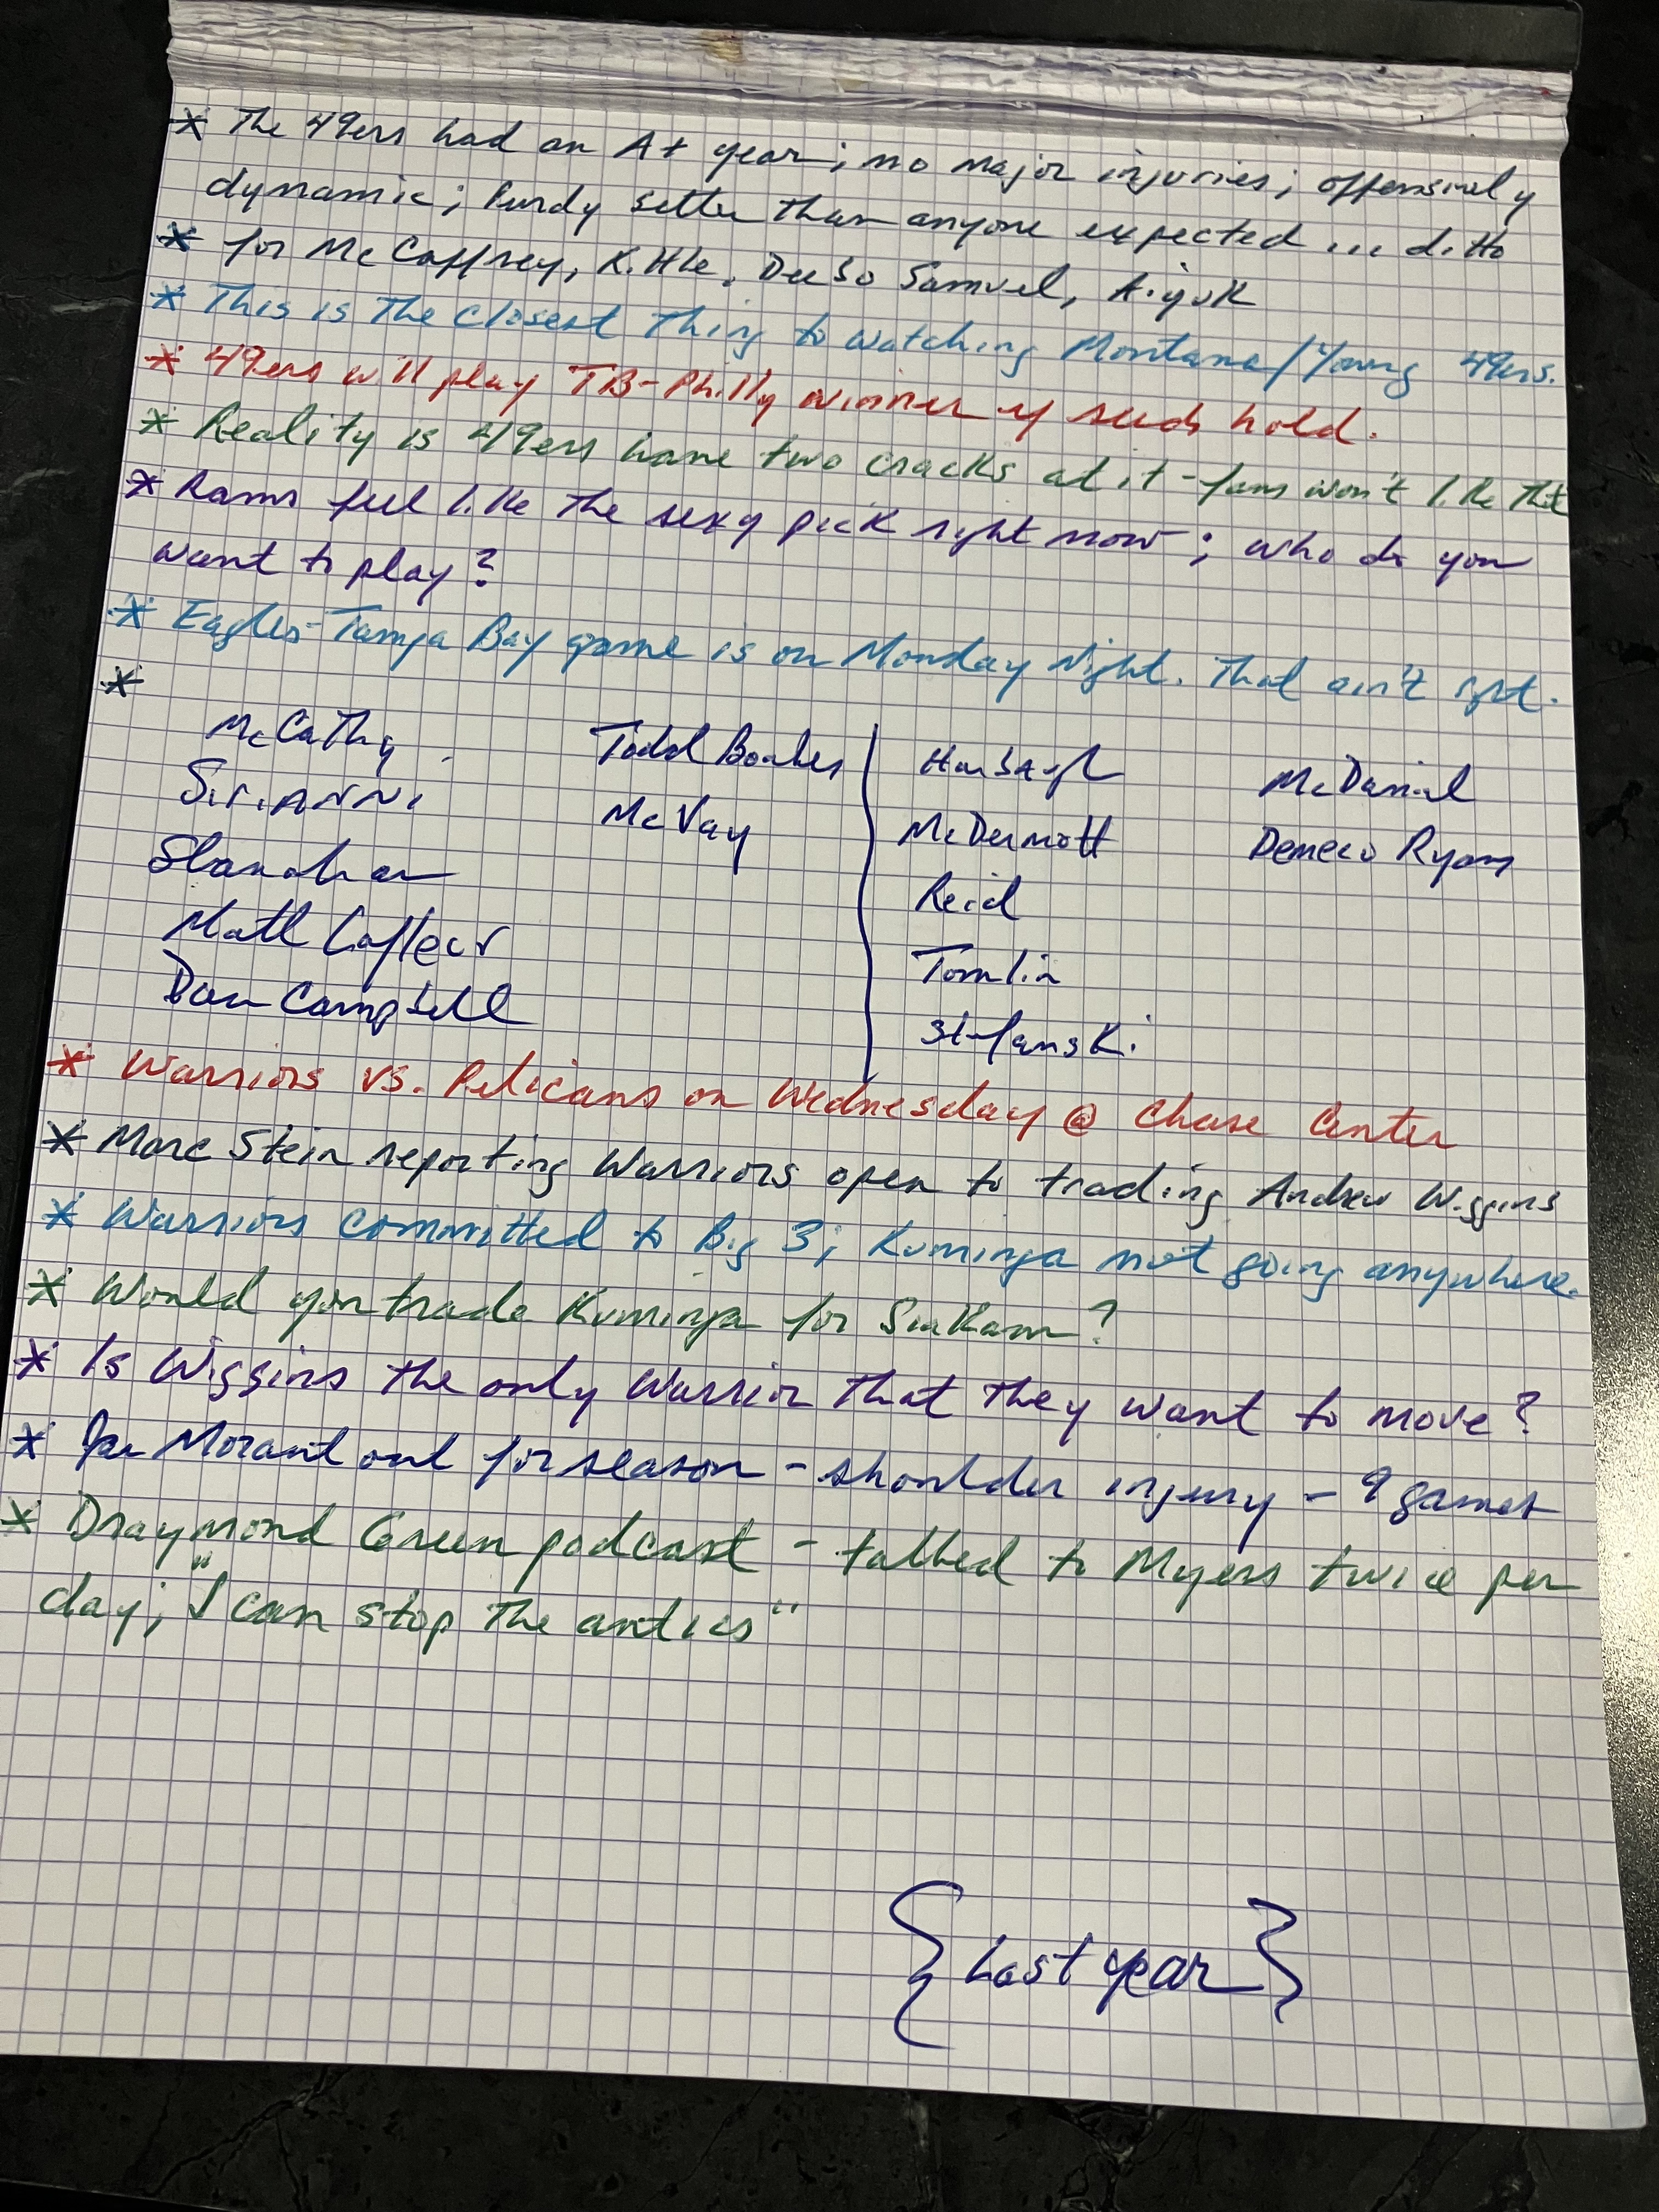 * The 49ers had an A+ year; no major injuries; offensively
dynamic; Purdy better than anyone expected ... ditto
* for McCaffrey, Kittle, Deebo Samuel, Aiyuk
* This is the closest thing to watching Montana/Young 49ers.
* 49ers will play TB-Philly winner if seeds hold.
* Reality is 49ers have two cracks at it - fans won't like that
* Rams feel like the sexy pick right now; who do you
want to play?
* Eagles-Tampa Bay game is on Monday Night. That ain't right.
*
McCathy Todd Bowles Harbaugh McDaniel
Sirianni McVay McDermott Demeco Ryans
Shanahan Reid
Matt Lafleur Tomlin
Dan Campbell Stefanski
* Warriors vs. Pelicans on Wednesday @ Chase Center
* Marc Stein reporting Warriors open to trading Andrew Wiggins
* Warriors committed to Big 3; Kuminga not going anywhere.
* Would you trade Kuminga for Siakam?
* Is Wiggins the only Warrior that they want to move?
* Ja Morant out for season - shoulder injury - 9 games
* Draymond Green podcast - talked to Myers twice per
day; "I can stop the antics"
{Last year}